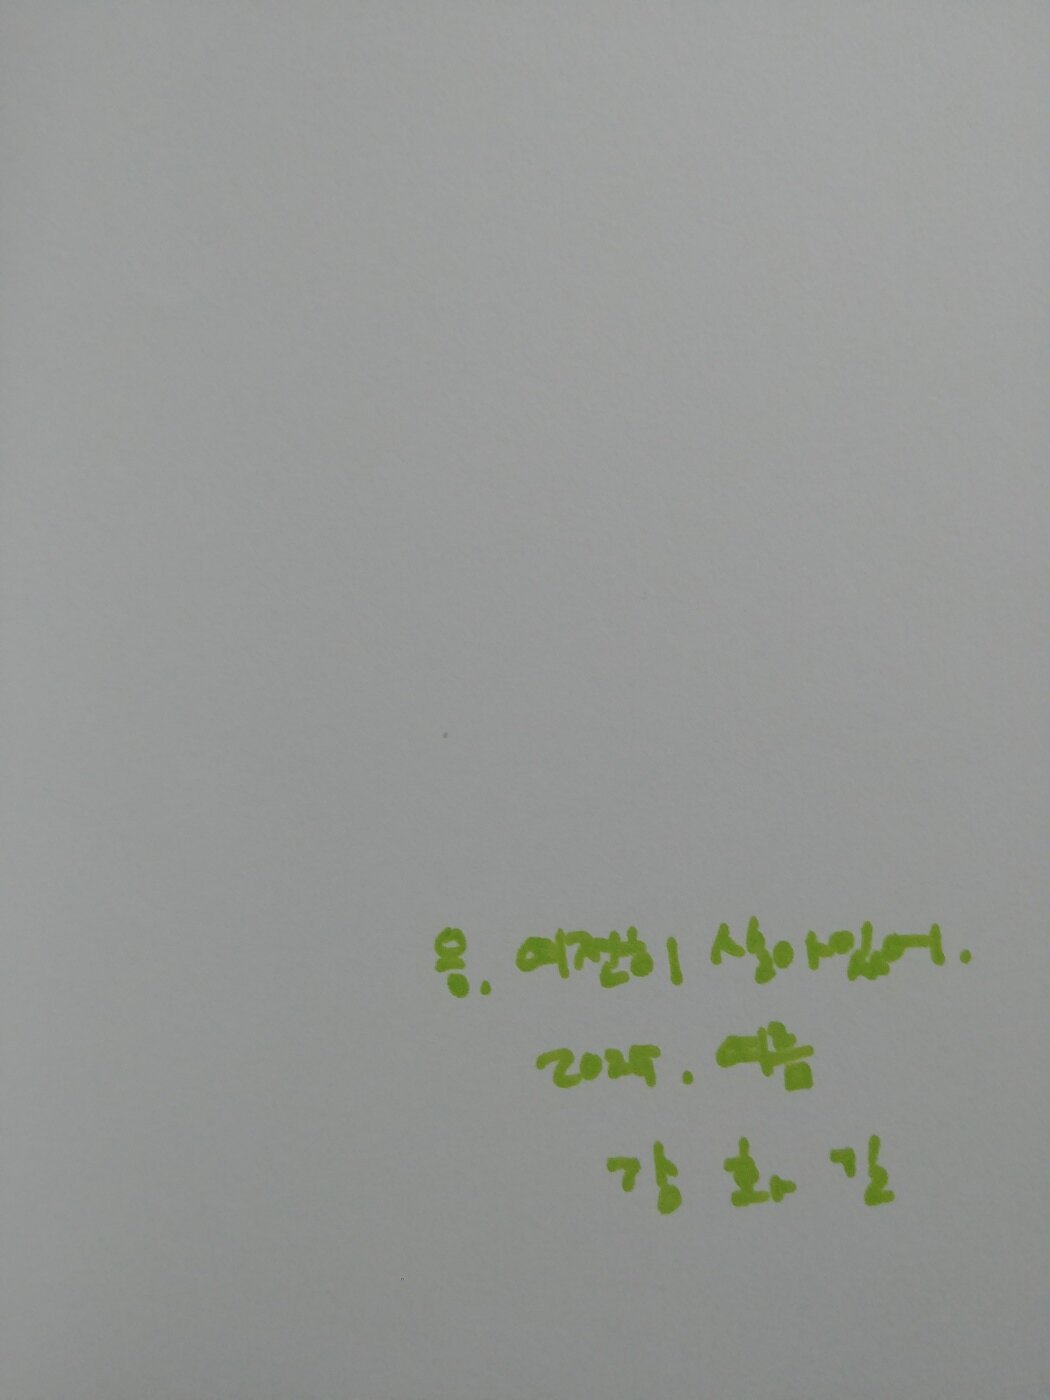 응. 여전히 살아있어.
2025. 여름
강 화 길